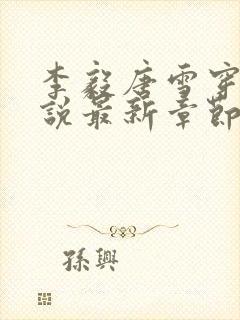 李毅唐雪穿
說最新章節
孫興